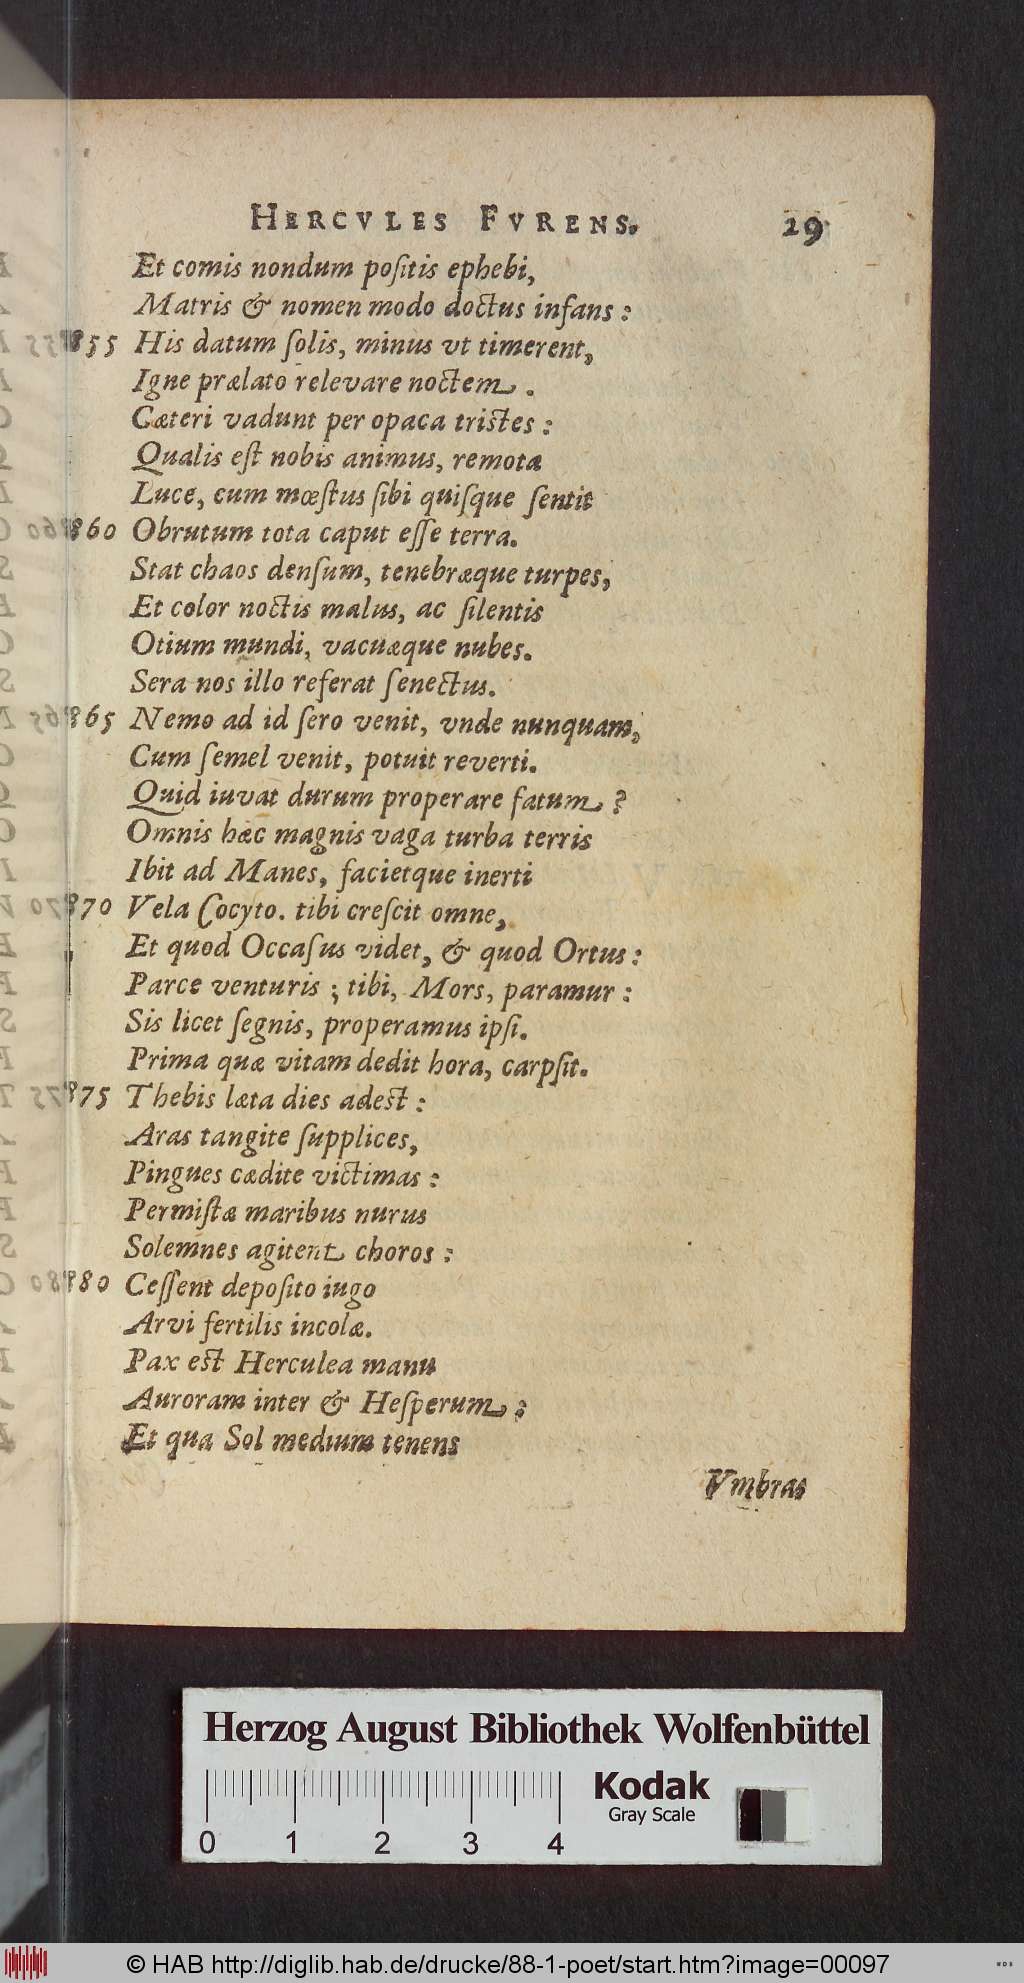 HERCVLES FVRENS. 29
Et comis nondum poſitis ephebi,
Matris & nomen modo doctus infans:
855 His datum ſolis, minus vt timerent,
Igne prælato relevare noctem.
Cæteri vadunt per opaca tristes:
Qualis eſt nobis animus, remota
Luce, cum mœſtus ſibi quiſque ſentit
860 Obrutum tota caput eſſe terra.
Stat chaos denſum, tenebræque turpes,
Et color noctis malus, ac ſilentis
Otium mundi, vacuæque nubes.
Sera nos illo referat ſenectus.
865 Nemo ad id ſero venit, vnde nunquam,
Cum ſemel venit, potuit reverti.
Quid iuvat durum properare fatum?
Omnis hæc magnis vaga turba terris
Ibit ad Manes, facietque inerti
870 Vela Cocyto. tibi creſcit omne,
Et quod Occaſus videt, & quod Ortus:
Parce venturis; tibi, Mors, paramur:
Sis licet ſegnis, properamus ipſi.
Prima quæ vitam dedit hora, carpſit.
875 Thebis læta dies adest:
Aras tangite ſupplices,
Pingues cædite victimas:
Permiſtæ maribus nurus
Solemnes agitent choros:
880 Ceſſent depoſito iugo
Arvi fertilis incolæ.
Pax est Herculea manu
Auroram inter & Heſperum:
Et qua Sol medium tenens
Vmbras
Herzog August Bibliothek Wolfenbüttel
Kodak
Gray Scale
0 1 2 3 4
© HAB http://diglib.hab.de/drucke/88-1-poet/start.htm?image=00097